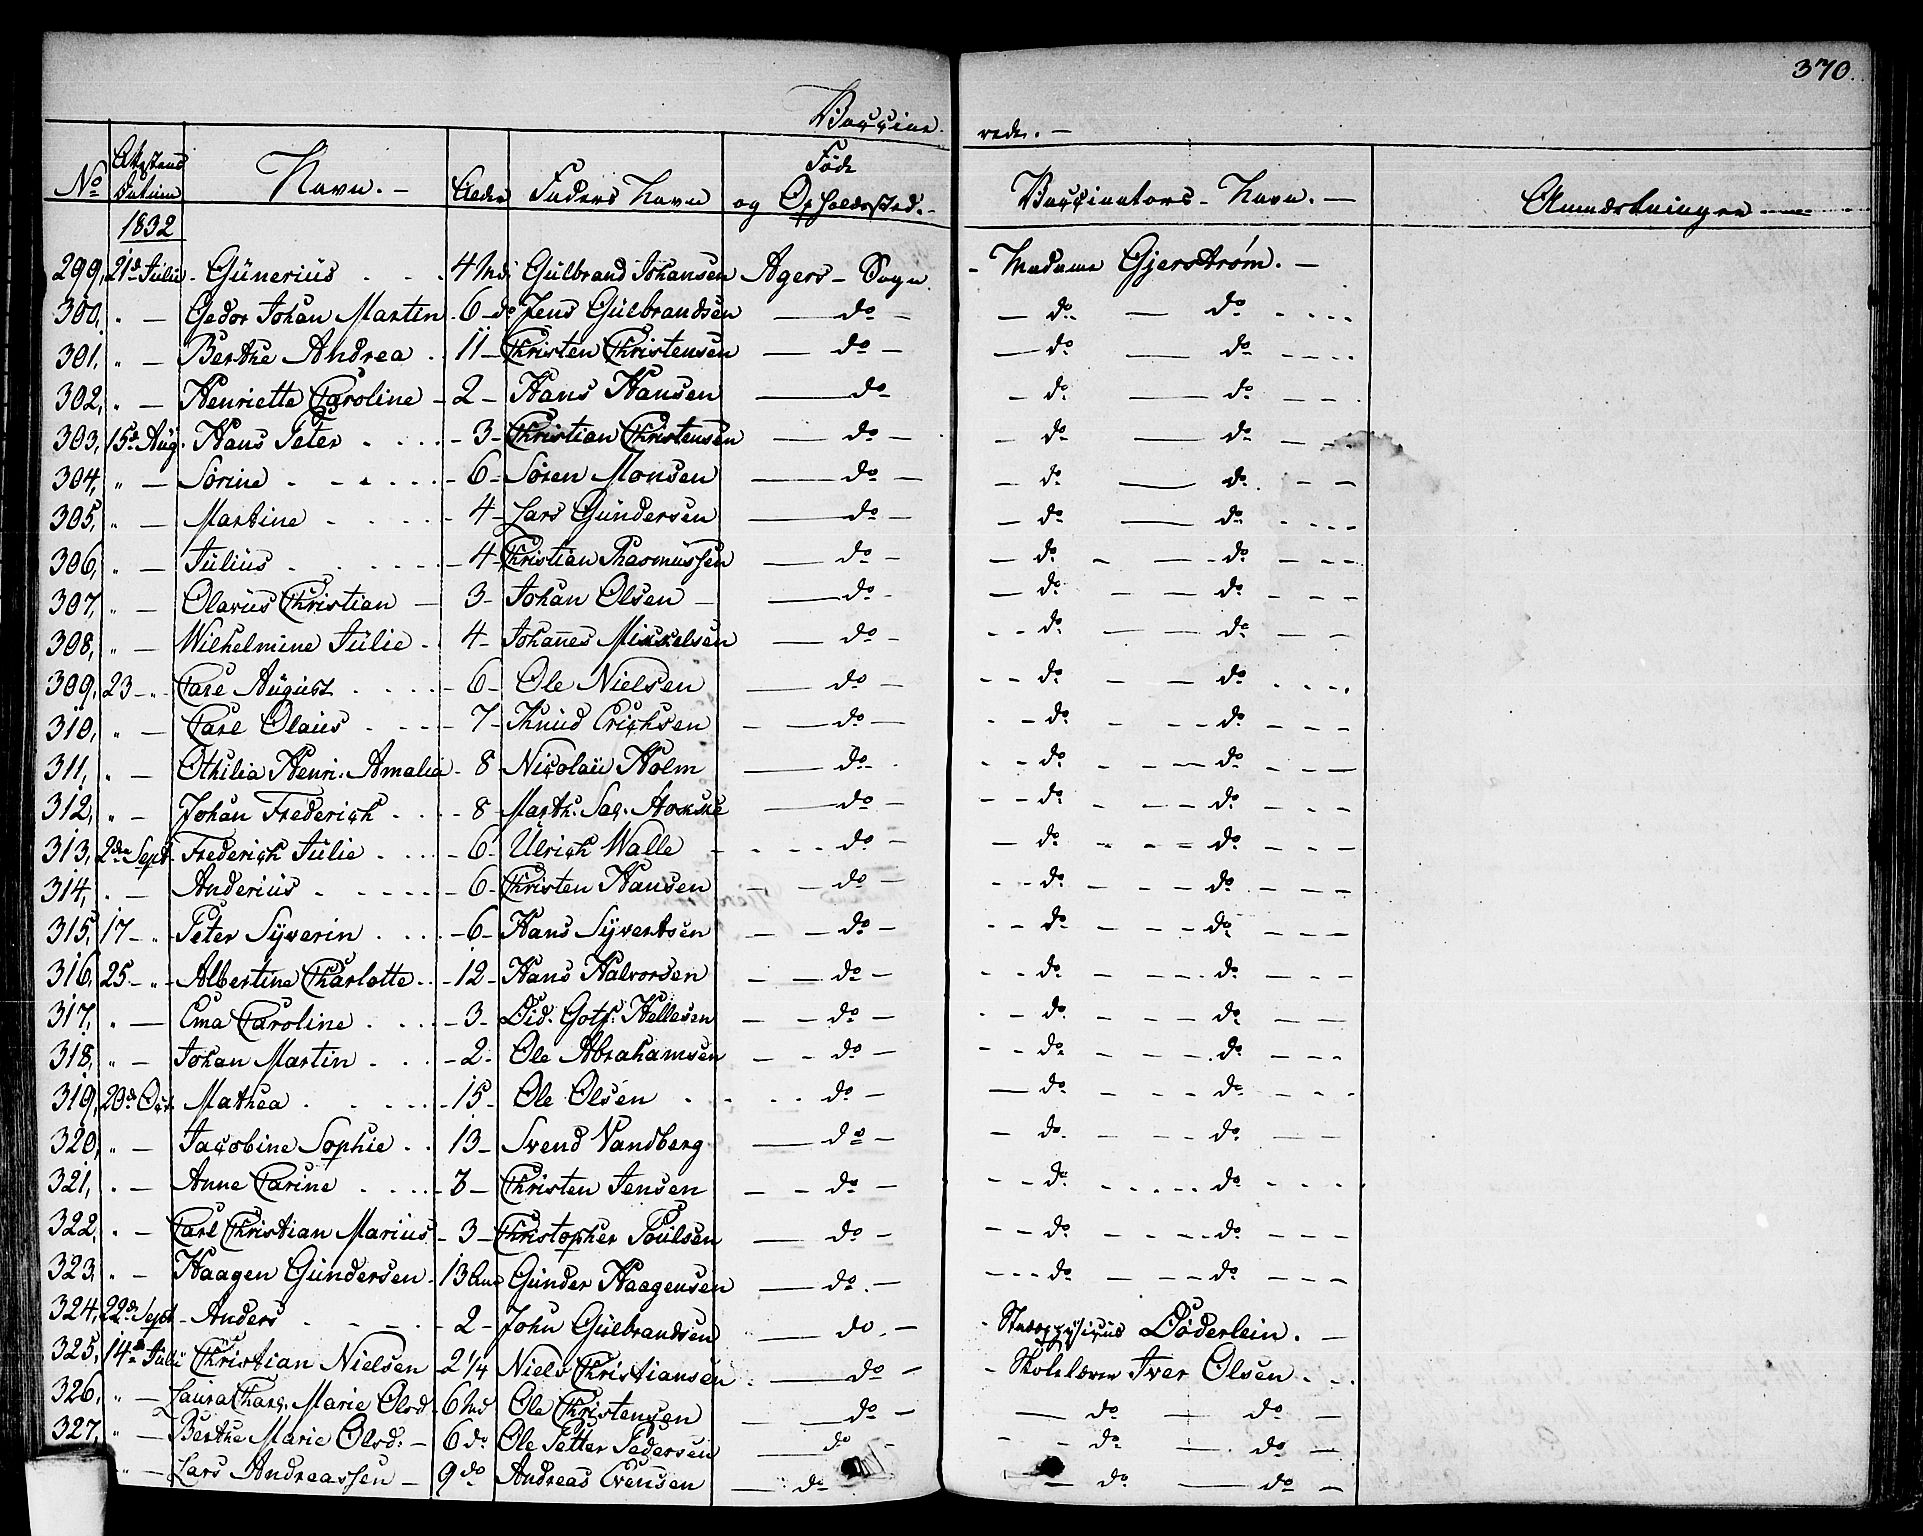 370.
Vaccine rede. —
No Attestens Datum Navn. — Alder Faders Navn Føde og Opholdssted. — Vaccinators Navn. — Anmærkninger
1832
299, 21de Julii Günerius 4 Md. Gülbrand Johansen Agers Sogn. Madame Gjerstrøm. —
300, " — Gedor Johan Martin 6 do Jens Gülbrandsen — do — — do — do
301, " — Berthe Andrea 11 — Christen Christensen — do — — do — do
302, " — Henriette Caroline — 2 — Hans Hansen — do — do — do
303, 15de Aug. Hans Peter — 3 — Christian Christensen — do — — do — do
304, " — Sørine — 6 — Søren Monsen — do — — do — do
305, " — Martine — 4 — Lars Gündersen — do — — do — do
306, " — Julius — 4 — Christian Rasmussen — do — — do — do
307, " — Olavüs Christian — 3 — Johan Olsen — do — — do — do
308, " — Wilhelmine Jülie 4 — Johannes Mikkelsen — do — — do — do
309, 23 — " — Carl August — 6 — Ole Nielsen — do — — do — do
310, " — Carl Olaüs — 7 — Knüd Erichsen — do — — do — do
311, " — Othilia Henri. Amalia — 8 — Nicolai Holm — do — do — do
312, " — Johan Frederich — 8 — Marth. Sac. — do — — do — do
313, 2den Sept Frederich Jülie — 6 — Ulrich Walle — do — — do — do
314, " — Anderiüs — 6 — Christen Hansen — do — — do — do
315, 17 — " — Peter Syverin — 6 — Hans Syvertsen — do — — do — do
316, 25 — " — Albertine Charlotte — 12 — Hans Halvorsen — do — — do — do
317, " — Ema Caroline — 3 — Did. Gotf. Hellesen — do — — do — do
318, " — Johan Martin — 2 — Ole Abrahamsen — do — — do — do
319, 20de Oct. Mathea — 15 — Ole Olsen — do — — do — do
320, " — Jacobine Sophie 13 — Svend Vandberg — do — — do — do
321, " — Anne Carine — 3 — Christen Jensen — do — — do — do
322, " — Carl Christian Marius — 3 — Christopher Poülsen — do — — do — do
323, " — Haagen Gündersen 13 Günder Haagensen — do — — do — do
324, 22de Sept — Anders — 2 — John Gülbrandsen — do — Døderlein. —
325, 14de Juli Christian Nielsen — 2 1/4 Niels Christiansen — do — Skolelærer Iver Olsen
326, " — Laura Charl. Marie Olsd — 6 Md Ole Christensen — do — — do — do —
327, " — Berthe Marie Olsd: — 6 do Ole Petter Pedersen — do — — do — do —
" — Lars Andreassen — 9 do Andreas Evensen — do — do — do —